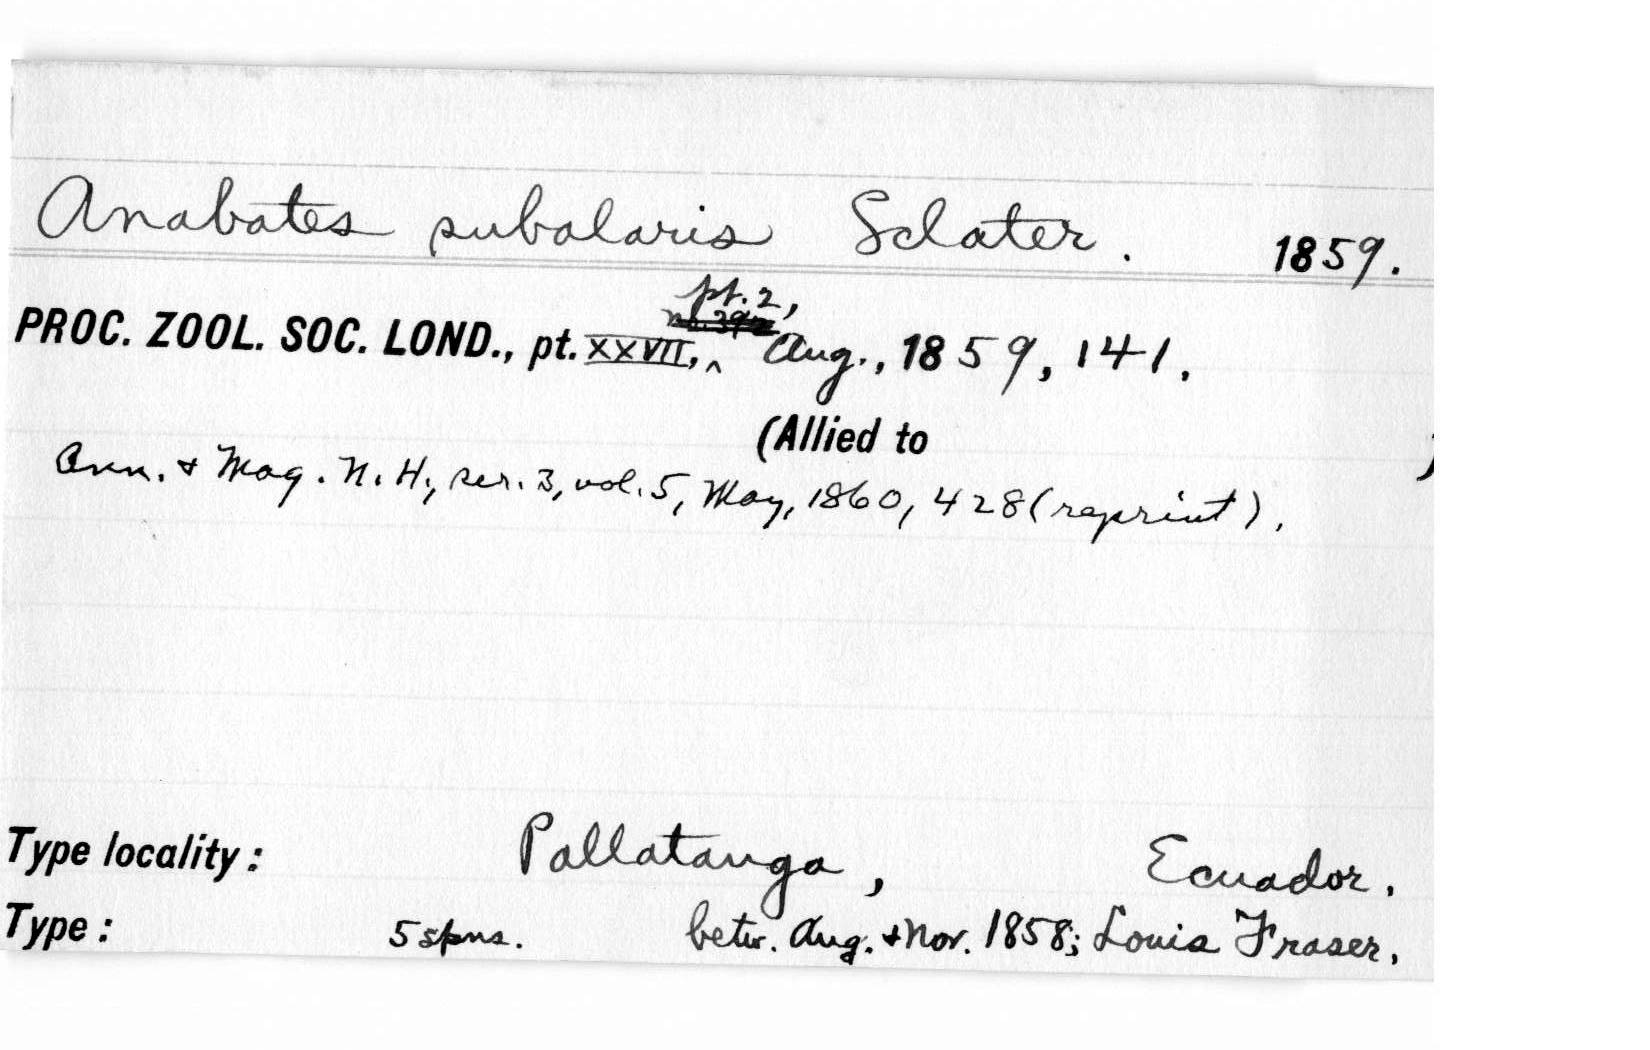 Anabates subalaris Sclater. 1859.
pt. 2,
PROC. ZOOL. SOC. LOND., pt. XXVII, ^ Aug., 1859, 141.
(Allied to )
Ann. & Mag. N. H., ser. 3, vol. 5, May, 1860, 428 (reprint).
Type locality: Pallatanga, Ecuador.
Type: 5 spns. betw. Aug. & Nov. 1858; Louis Fraser.